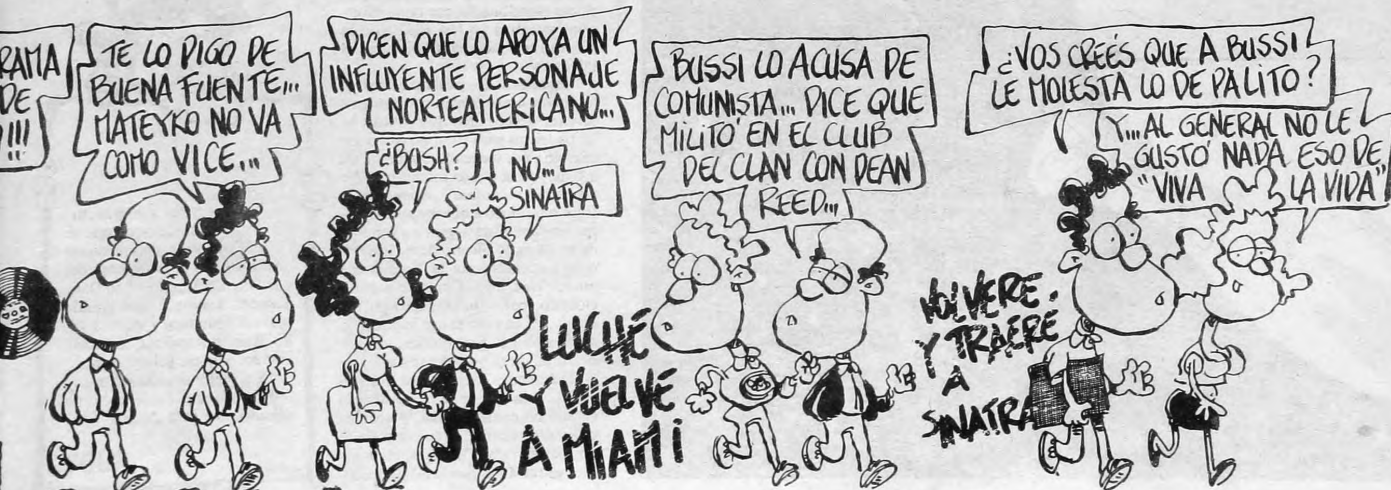 RAMA
DE
!!!
TE LO DIGO DE
BUENA FUENTE...
MATEYKO NO VA
COMO VICE...
DICEN QUE LO APOYA UN
INFLUYENTE PERSONAJE
NORTEAMERICANO...
¿BUSH?
NO...
SINATRA
LUCHÉ
Y VUELVE
A MIAMI
BUSSI LO ACUSA DE
COMUNISTA... DICE QUE
MILITÓ EN EL CLUB
DEL CLAN CON DEAN
REED...
VOLVERE
Y TRAERE
A
SINATRA
¿VOS CREÉS QUE A BUSSI
LE MOLESTA LO DE PALITO?
Y... AL GENERAL NO LE
GUSTÓ NADA ESO DE
"VIVA LA VIDA"